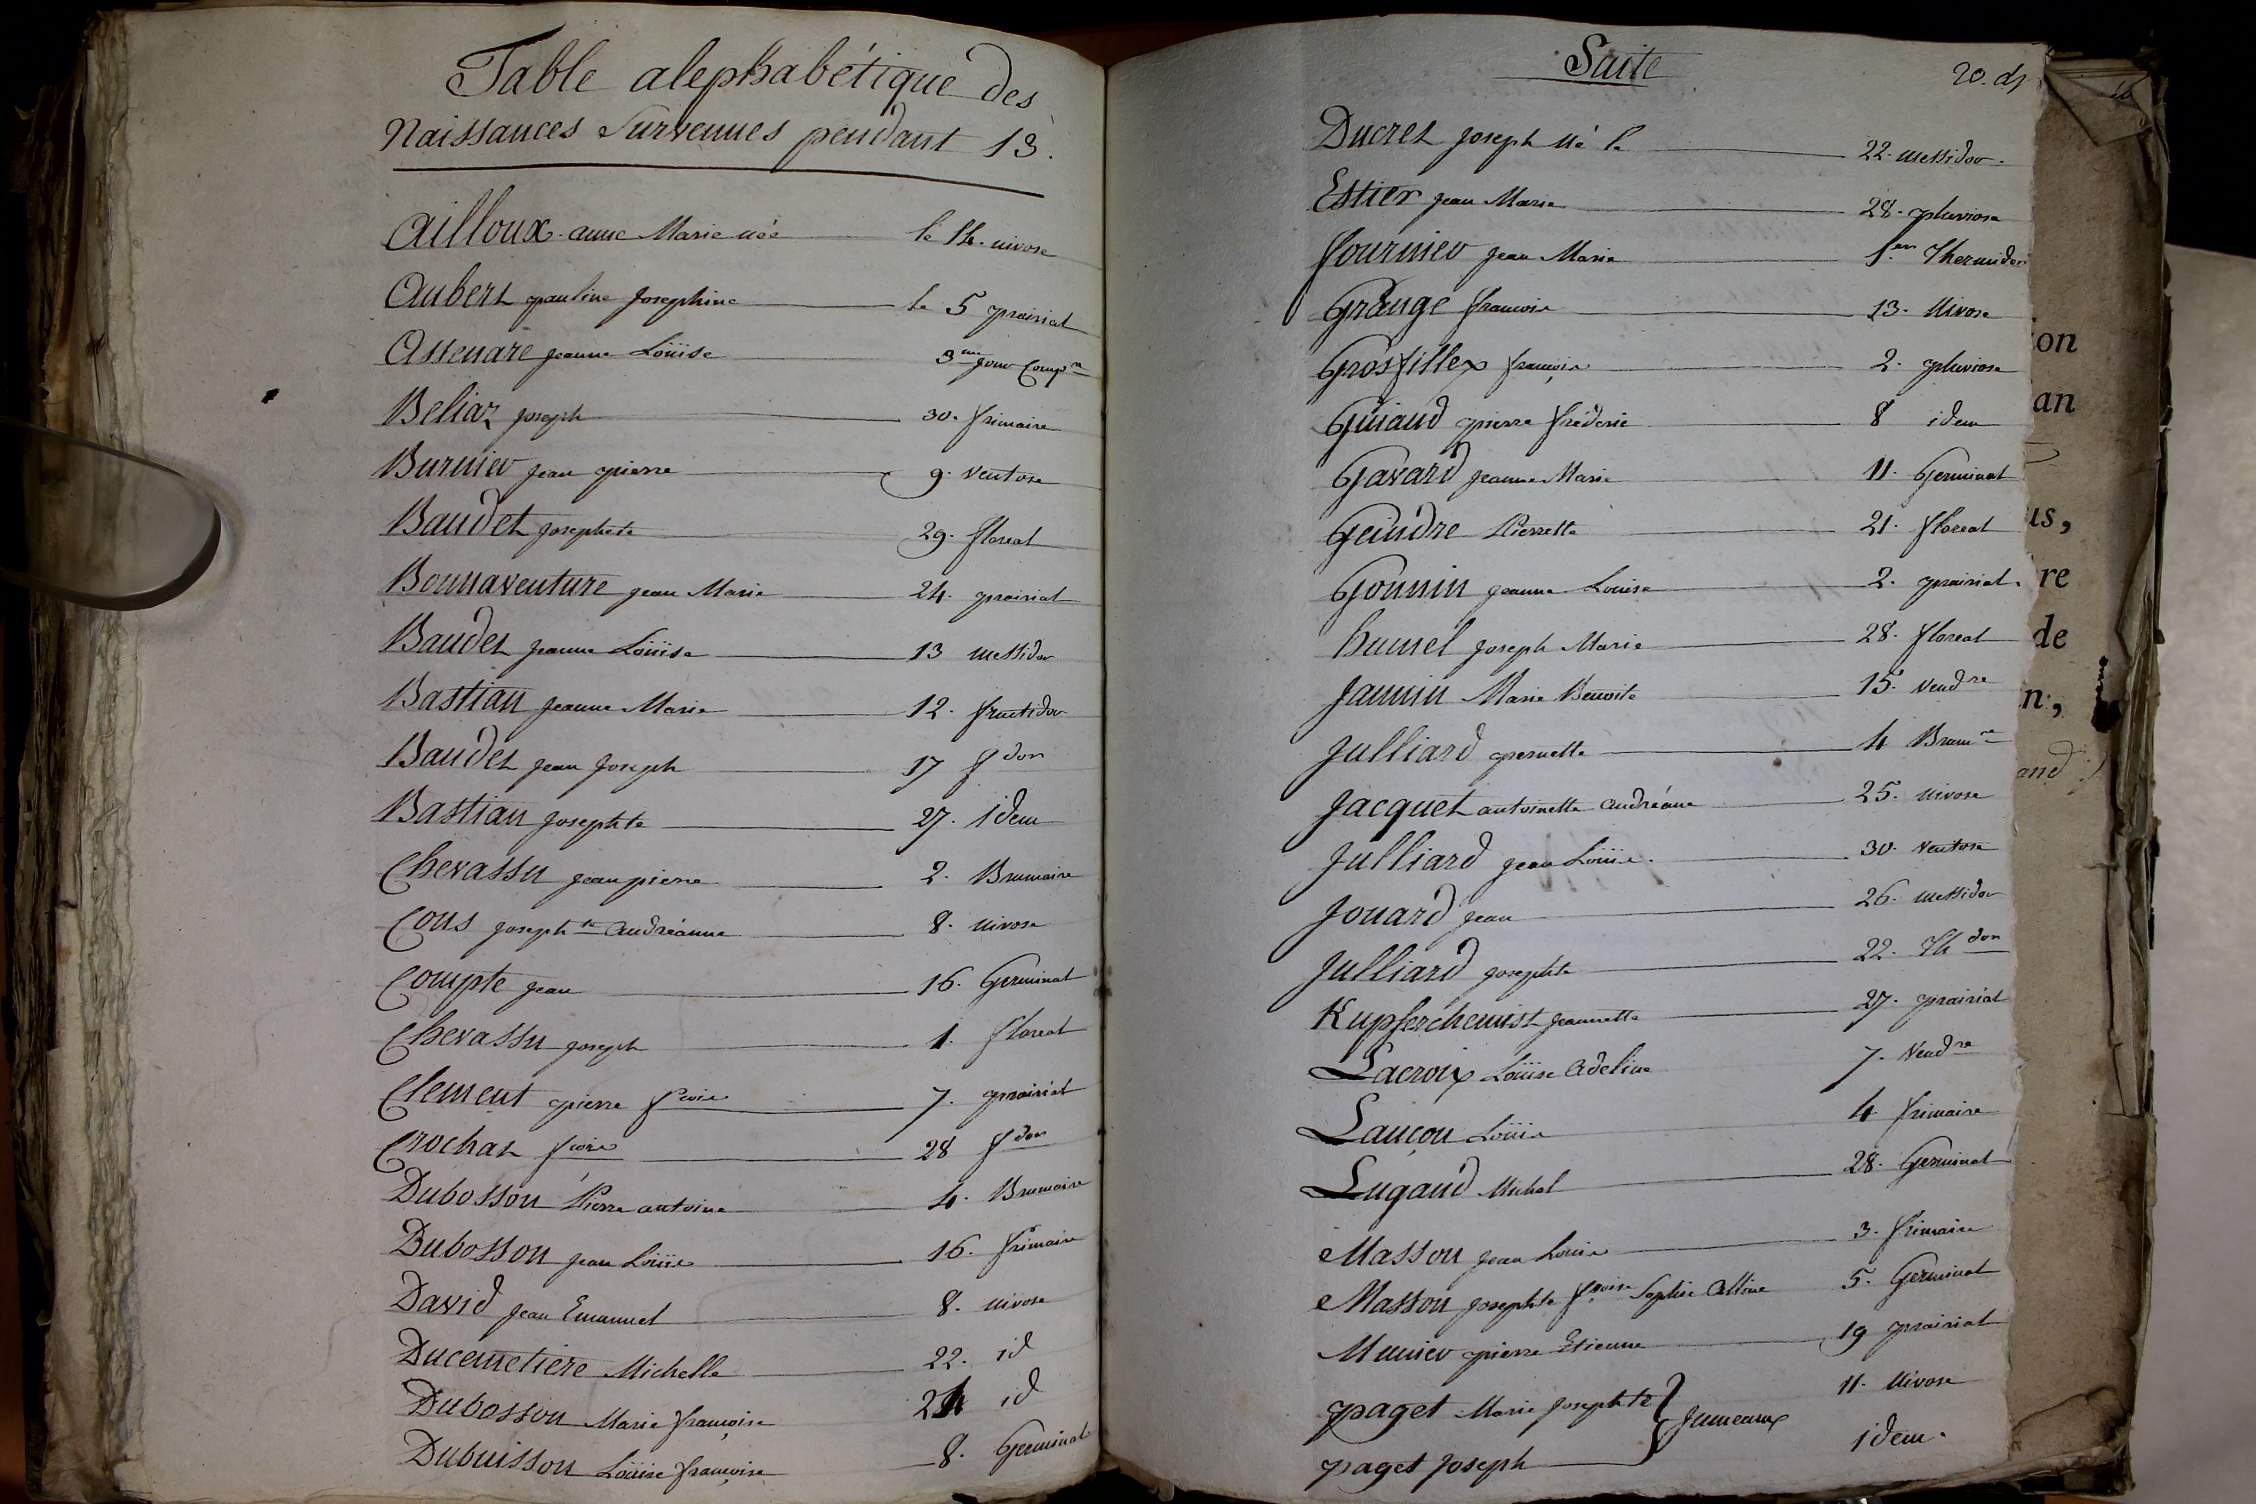 Table alephabétique des
Naissances Survenues pendant 13.
Ailloux anne Marie née le 14. nivose
Aubert pauline Josephine le 5 prairial
Assenare jeanne Loüise 3me jour Comp.re
Beliaz joseph 30. frimaire
Burnier jean pierre 9. ventose
Baudet josephete 29. floreal
Bonnaventure jean Marie 24. prairial
Baudet jeanne Loüise 13 messidor
Bastian jeanne Marie 12. fructidor
Baudet jean Joseph 17 fdor
Bastian josephte 27. idem
Chevassu jean pierre 2. Brumaire
Cous josephte andréanne 8. nivose
Compte jean 16. Germinal
Chevassu joseph 1. floreal
Clement pierre fcois 7. prairial
Crochat fcois 28 fdor
Dubosson Pierre antoine 4. Brumaire
Dubosson jean Loüis 16. frimaire
David jean Emanuel 8. nivose
Ducemetiere Michelle 22. id
Dubosson Marie françoise 24 id
Dubuisson Loüise françoise 8. Germinal
Suite
20.
Ducret joseph né le 22. messidor.
Estier jean Marie 28. pluviose
fournier jean Marie 1.er Thermidor
Grange francois 13. Nivose
Grosfillex françois 2. pluviose
Guiaud pierre fréderic 8 idem
Gavard jeanne Marie 11. Germinal
Geindre Pierrette 21. floreal
Gonnin jeanne Louise 2. prairial.
humel joseph Marie 28. floreal
Jannin Marie Benoite 15. Vendre
Julliard pernette 4 Brumre
Jacquet antoinette andréane 25. nivose
Julliard jean Loüis. 30. ventose
Jouard jean 26. messidor
Julliard josephte 22. Thdor
Kupferchemist jeannette 27. prairial
Lacroix Loüise Adeline 7. Vendre
Lançon Loüis 4 frimaire
Lugand Michel 28. Germinal
Masson jean Louis 3. frimaire
Masson josephte fcoise Sophie 5. Germinal
Munier pierre Etienne 19 prairial
paget Marie Josephte } Jumeaux 11. Nivose
paget Joseph idem.
on
an
us,
re
de
n,
and